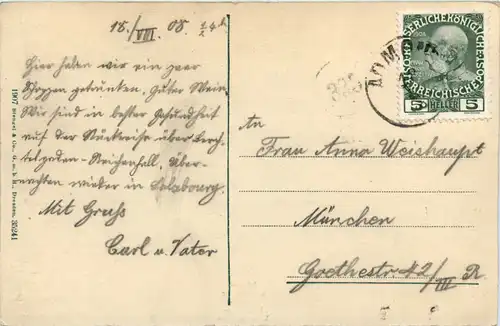 15./VIII. 08
Hier haben wir ein paar
Schoppen getrunken. Guter Wein
Wir sind in bester Gesundheit
auf der Rückreise über Berch-
tesgaden - Reichenhall, über-
nachten wieder in Salzburg.
Mit Gruss
Carl u. Vater
1907 Stengel & Co., G. m. b. H., Dresden. 35241
KAISERLICHE KÖNIGLICHE
ÖSTERREICHISCHE POST
5 HELLER 5
ADMONT
An
Frau Anna Weishaupt
München
Goethestr. 42/III R